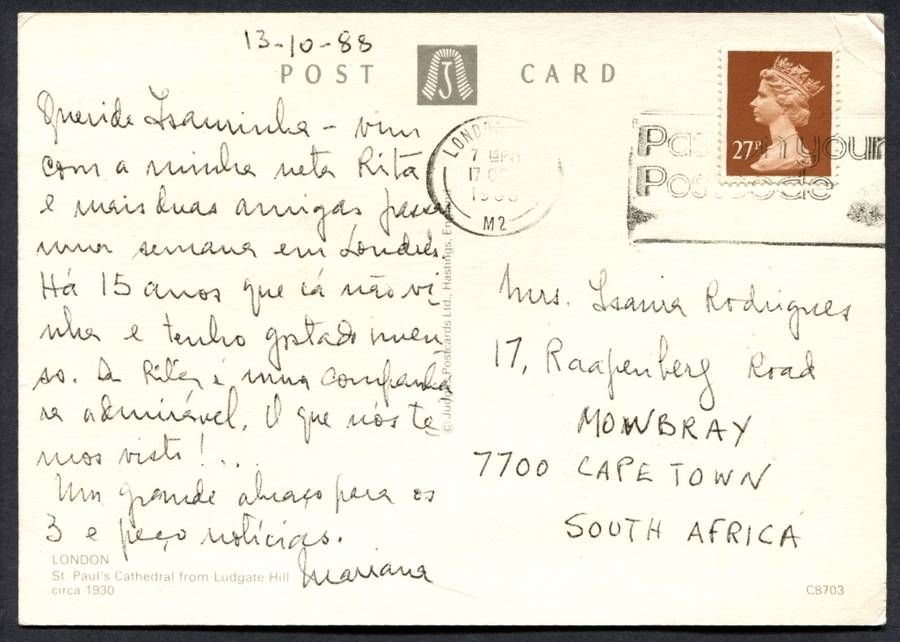 13-10-88
POST CARD
Querida Isaurinha – vim
com a minha neta Rita
e mais duas amigas passar
uma semana em Londres.
Há 15 anos que cá não vi-
nha e tenho gostado imen-
so. A Rita é uma companhei-
ra admirável. O que nós te-
mos visto!...
Um grande abraço para os
3 e peço notícias.
Mariana
LONDON
St. Paul's Cathedral from Ludgate Hill
circa 1930
© Judges Postcards Ltd., Hastings,
LONDON
7 PM
17 OC
1988
M2
27P
your
Postcode
Mrs. Isaura Rodrigues
17, Raapenberg Road
MOWBRAY
7700 CAPE TOWN
SOUTH AFRICA
C8703